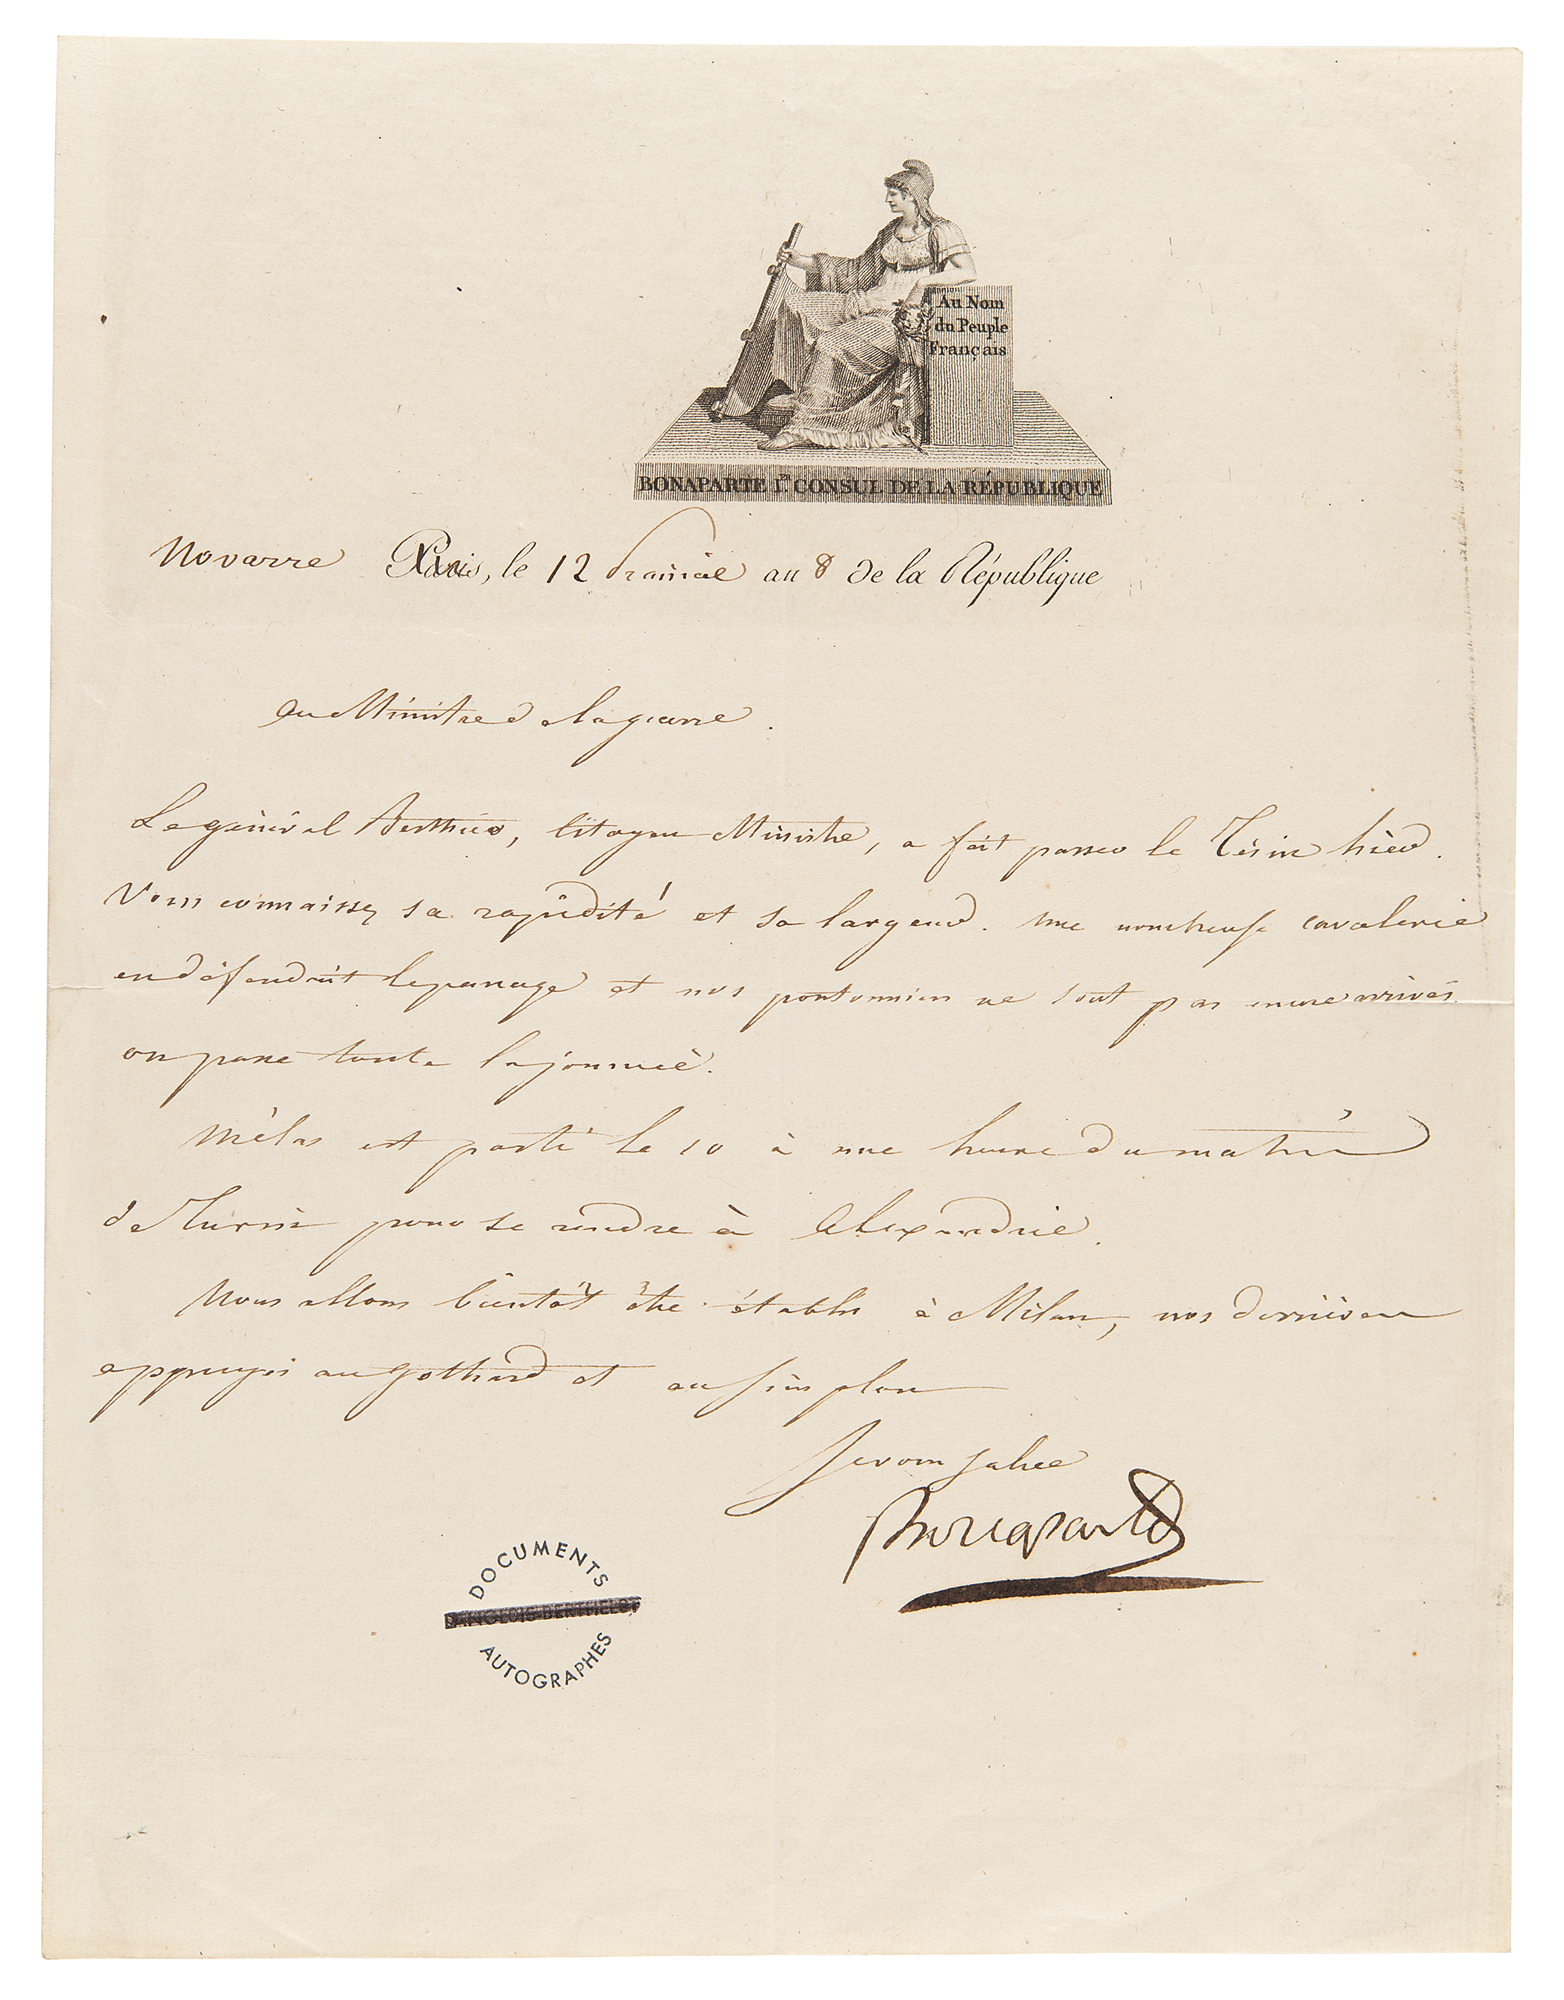 Au Nom
du Peuple
Français
BONAPARTE 1er CONSUL DE LA RÉPUBLIQUE
Novarre Paris, le 12 Prairial an 8 de la République
Au Ministre de la guerre.
Le général Berthier, Citoyen Ministre, a fait passer le Tésin hier.
Vous connaissez sa rapidité et sa largeur. Une nombreuse cavalerie
en défendait le passage et nos pontonniers ne sont pas encore arrivés
on passe toute la journée.
Mélas est parti le 10 à une heure du matin
de Turin pour se rendre à Alexandrie.
Nous allons bientôt être établis à Milan, nos derrières
appuyés au Gothard et au Simplon
Je vous salue
Bonaparte
DOCUMENTS
LANGLOIS-BERTHELOT
AUTOGRAPHES